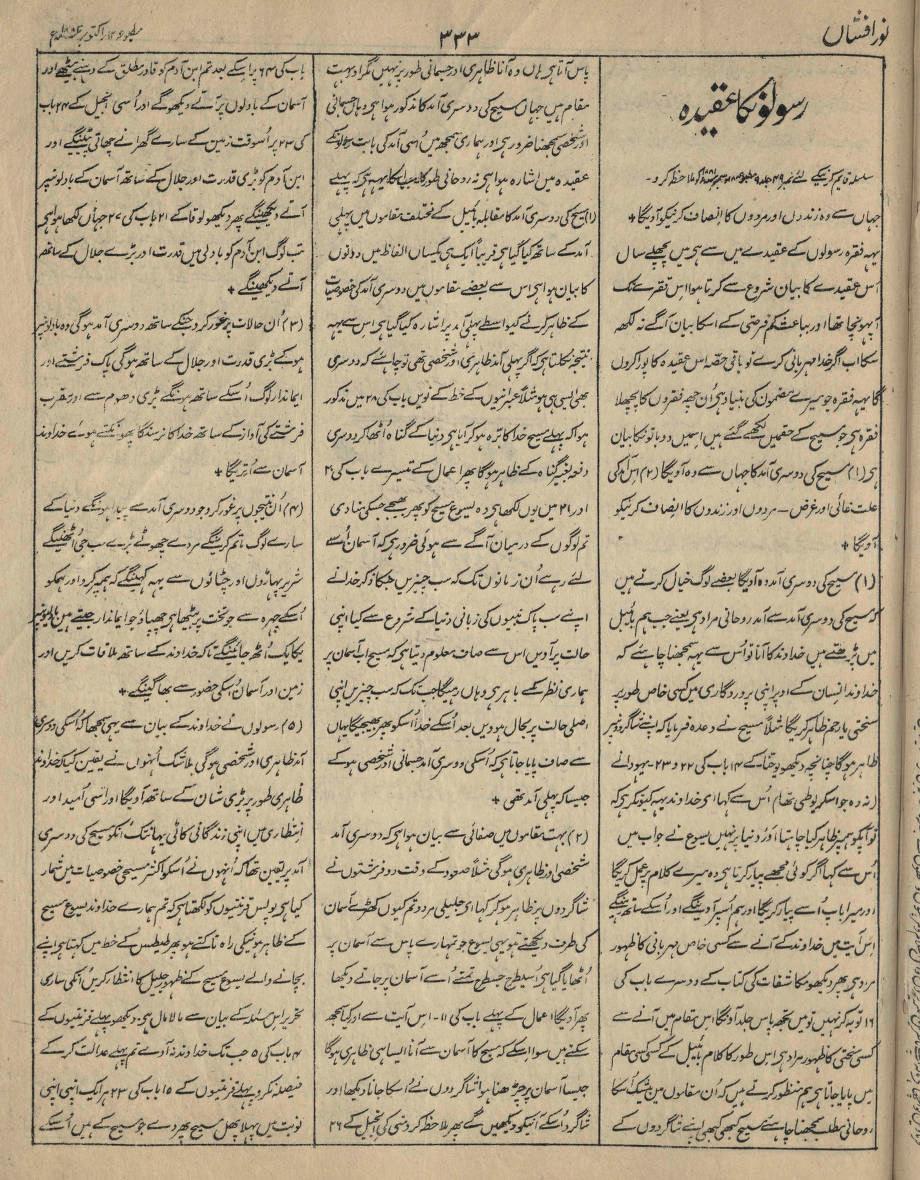 نور افشاں
۳۳۳
مطبوعہ ۱۲ اکتوبر
رسولونکا عقیدہ
سلسلہ قایم کرنیکے لئے نمبر ۴۹ جلد ۹ مطبوعہ ۸ دسمبر ۱۸۸۱ کو ملاحظہ کرو۔
جہاں سے وہ زندوں اور مردوں کا انصاف کرنیکو آویگا +
یہہ فقرہ رسولوں کے عقیدے میں سے ہی میں پچھلے سال
اُس عقیدے کا بیان شروع سے کرتا ہوا اس فقرے تک
آپہونچا تھا اور بباعث کم فرصتی کے اسکا بیان آگے نہ لکھہ
سکا اب اگر خدا مہربانی کرے تو باقی حصّہ اس عقیدہ کا پورا کروں
گا یہہ فقرہ جو میرے مضمون کی بنیاد ہی اُن چھہ فقروں کا پچھلا
فقرہ ہی جو مسیح کے حقمیں لکھے گئے ہیں اسمیں دو باتونکا بیان
ہی (۱) مسیح کی دوسری آمد کا جہاں سے وہ آویگا (۲) اُس آمد کی
علت غائی اور غرض ۔ مردوں اور زندوں کا انصاف کرنیکو
آویگا +
(۱) مسیح کی دوسری آمد وہ آویگا بعضے لوگ خیال کرتے ہیں
کہ مسیح کی دوسری آمد سے آمد روحانی مراد ہی یعنے جب ہم بائبل
میں پڑھتے ہیں خداوند کا آنا تو اُس سے یہہ سمجھنا چاہئے کہ
خداوند انسان کے اوپر اپنی پروردگاری میں کسی خاص طور پر
سختی یا رحم ظاہر کریگا مثلاً مسیح نے وعدہ فرمایا کہ اپنے شاگردونپر
ظاہر ہوگا چنانچہ دیکھو یوحنا کے ۱۴ باب کی ۲۲ و ۲۳۔ یہودا نے
(نہ وہ جو اسکریوطی تھا) اُس سے کہا ای خداوند یہہ کیونکر ہی کہ
تو آپکو ہمپر ظاہر کیا چاہتا اور دنیا پر نہیں یسوع نے جواب میں
اُس سے کہا اگر کوئی مجھے پیار کرتا ہی وہ میرے کلام پر عمل کریگا
اور میرا باپ اُسے پیار کریگا اور ہم اُسپر آوینگے اور اُسکے ساتھ رہینگے
اس آیت میں خداوند کے آنے سے کسی خاص مہربانی کا ظہور
مراد ہی پھر دیکھو مکاشفات کی کتاب کے دوسرے باب کی
۱۶ توبہ کر نہیں تو میں تجھہ پاس جلد آؤنگا اس مقام میں آنے سے
کسی سختی کا ظہور مراد ہی اس طور کا کلام بائبل کے کسی کسی مقام
میں پایا جاتا ہی ہم منظور کرتے ہیں کہ اُن مقاموں میں بیشک اُسکا
روحانی مطلب سمجھنا چاہئے مسیح کبھی کبھی اپنے شاگردوں کے
پاس آتا ہی ہاں وہ آنا ظاہری اور جسمانی طور پر نہیں مگر اور بہت
مقام ہیں جہاں مسیح کی دوسری آمد کا مذکور ہوا ہی وہاں جسمانی
اور شخصی سمجھنا ضرور ہی اور ہماری سمجھہ میں اُسی آمد کی بابت رسولونکے
عقیدہ میں اشارہ ہوا ہی نہ روحانی طور کا سبب اسکا یہہ ہی کہ پہلے
(۱) مسیح کی دوسری آمد کا مقابلہ بائبل کے مختلف مقاموں میں پہلی
آمد کے ساتھ کیا گیا ہی قریباً ایک ہی یکساں الفاظ میں دونوں
کا بیان ہوا ہی اس سے بعضے مقاموں میں دوسری آمد کی خصوصیات
کے ظاہر کرنے کیواسطے پہلی آمد پر اشارہ کیا گیا ہی اس سے یہہ
نتیجہ نکلتا ہی کہ اگر پہلی آمد ظاہری اور شخصی تھی تو چاہئے کہ دوسری
بھی ایسی ہی ہو مثلاً عبرانیوں کے خط کے نویں باب کی ۲۸ میں مذکور
ہوا کہ پہلے مسیح خدا کا برّہ ہو کر آیا ہی دنیا کے گناہ اُٹھا کر دوسری
دفعہ بغیر گناہ کے ظاہر ہوگا پھر اعمال کے تیسرے باب کی ۲۰
اور ۲۱ میں یوں لکھا ہی وہ یسوع مسیح کو پھر بھیجے جسکی منادی
تم لوگوں کے درمیان آگے سے ہوئی ضرور ہی کہ آسمان اُسے
لئے رہے اُن زمانوں تک کہ سب چیزیں جنکا ذکر خدا نے
اپنے سب پاک نبیوں کی زبانی دنیا کے شروع سے کیا اپنی
حالت پر آویں اس سے صاف معلوم دیتا ہی کہ مسیح اب آسمان پر
ہماری نظر سے باہر ہی وہاں رہیگا جب تک کہ سب چیزیں اپنی
اصلی حالت پر بحال ہوویں بعد اُسکے خدا اُسکو پھر بھیجیگا یہاں
سے صاف پایا جاتا ہی کہ اُسکی دوسری آمد جسمانی اور شخصی ہوگی
جیسا کہ پہلی آمد تھی +
(۲) بہت مقاموں میں صفائی سے بیان ہوا ہی کہ دوسری آمد
شخصی اور ظاہری ہوگی مثلاً صعود کے وقت دو فرشتوں نے
شاگردوں پر ظاہر ہو کر کہا ای جلیلی مردو تم کیوں کھڑے آسمان
کی طرف دیکھتے ہو یہی یسوع جو تمہارے پاس سے آسمان پر
اُٹھایا گیا ہی اُسیطرح جسطرح تمنے اُسے آسمان پر جاتے دیکھا
پھر آویگا اعمال کے پہلے باب کی ۱۱۔ اس آیت سے اور کیا سمجھہ
سکتے ہیں سوا اسکے کہ مسیح کا آسمان سے آنا ایسا ہی ظاہری ہوگا
جیسا آسمان پر چڑھنا ہوا شاگردوں نے اُسکا جانا دیکھا اور
شاگرد اُسکے آنیکو دیکھیں گے پھر ملاحظہ کرو متی کی انجیل کے ۲۶
باب کی ۶۴ پر اسکے بعد تم ابن آدم کو قادر مطلق کے دہنے بیٹھے اور
آسمان کے بادلوں پر آتے دیکھو گے اور اُسی انجیل کے ۲۴ باب
کی ۳۰ پر اُسوقت زمین کے سارے گھرانے چھاتی پیٹینگے اور
ابن آدم کو بڑی قدرت اور جلال کے ساتھ آسمان کے بادلونپر
آتے دیکھینگے پھر دیکھو لوقا کے ۲۱ باب کی ۲۷ جہاں لکھا ہوا ہی
تب لوگ ابن آدم کو بادلی میں قدرت اور بڑے جلال کے ساتھ
آتے دیکھینگے +
(۳) اُن حالات پر غور کرو جنکے ساتھ دوسری آمد ہوگی وہ بادلونپر
ہو کے بڑی قدرت اور جلال کے ساتھ ہوگی پاک فرشتے اور
ایماندار لوگ اُسکے ساتھ ہونگے بڑی دھوم سے اور مقرب
فرشتے کی آواز کے ساتھ خدا کا نرسنگا پھونکتے ہوئے خداوند
آسمان سے اُتریگا +
(۴) اُن نتیجوں پر غور کرو جو دوسری آمد سے پیدا ہونگے دنیا کے
سارے لوگ ماتم کرینگے مردے چھوٹے بڑے سب جی اُٹھینگے
شریر پہاڑوں اور چٹانوں سے یہہ کہینگے کہ ہمپر گرو اور ہمکو
اُسکے چہرہ سے جو تخت پر بیٹھا ہی چھپاؤ جو ایماندار جیتے ہیں بادلونپر
یکایک اُٹھہ جائینگے تاکہ خداوند کے ساتھ ملاقات کریں اور
زمین اور آسمان اُسکی حضور سے بھاگینگے +
(۵) رسولوں نے خداوند کے بیان سے یہی سمجھا کہ اُسکی دوسری
آمد ظاہری اور شخصی ہوگی بلاشک اُنہوں نے یقین کیا کہ خداوند
ظاہری طور پر بڑی شان کے ساتھ آویگا اور اسی اُمید اور
انتظاری میں اپنی زندگانی کاٹی یہانتک اُنکو مسیح کی دوسری
آمد پر یقین تھا کہ اُنہوں نے اُسکو اکثر مسیحی خصوصیات میں شمار
کیا ہی پولس قرنتیوں کو لکھتا ہی کہ تم ہمارے خداوند یسوع مسیح
کے ظاہر ہونیکی راہ تاکتے ہو پھر طیطس کے خط میں کہتا ہی اپنے
بچانے والے یسوع مسیح کے ظہور جلیل کا انتظار کریں اُنکی ساری
تحریر اس مسئلہ کے بیان سے مالا مال ہی دیکھو پہلے قرنتیوں کے
۴ باب کی ۵ جب تک خداوند نہ آوے تم پہلے عدالت کر کے
فیصلہ نکرو پہلے قرنتیوں کے ۱۵ باب کی ۲۳ ہر ایک اپنی اپنی
نوبت میں پہلا پھل مسیح پھر وے جو مسیح کے ہیں اُسکے